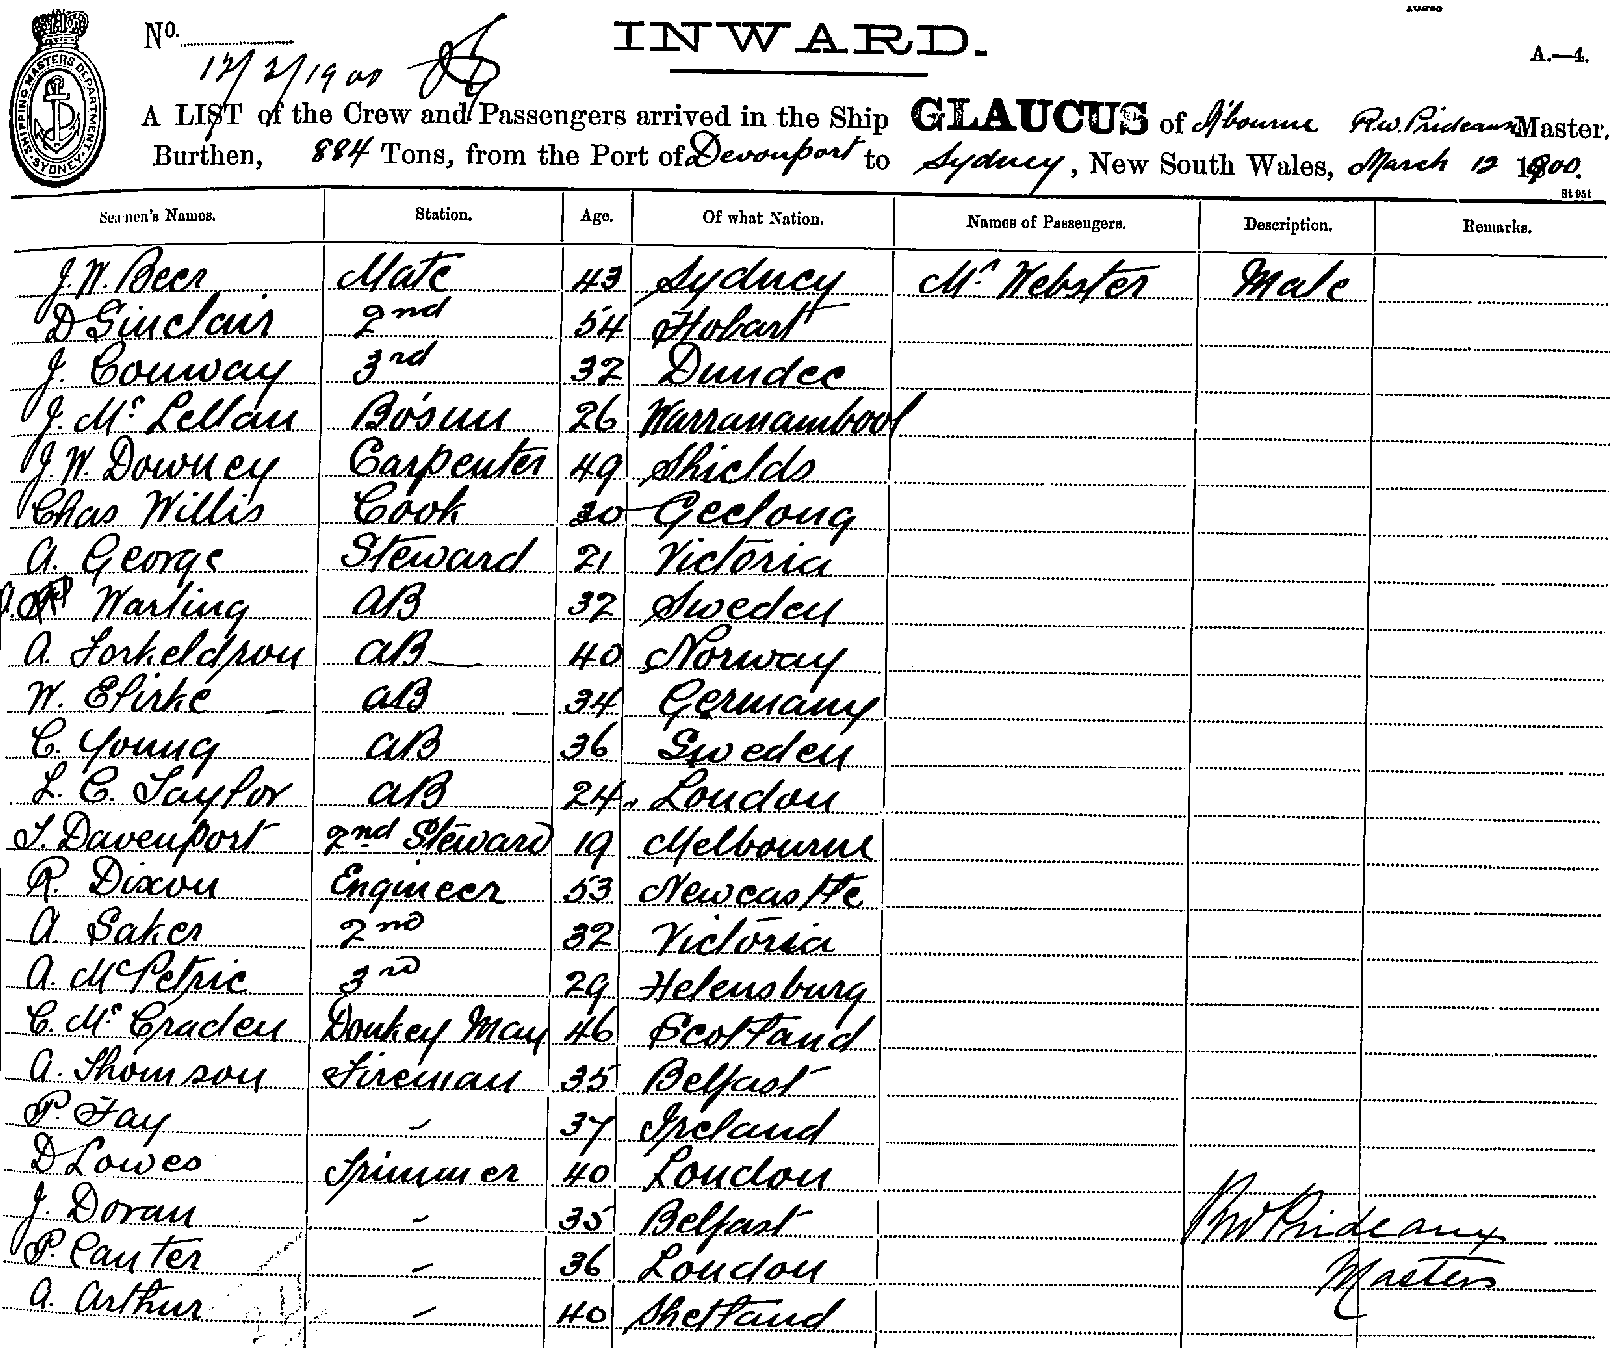 No.
INWARD.
A.—4.
12/3/1900
SHIPPING MASTERS DEPARTMENT SYDNEY
A LIST of the Crew and Passengers arrived in the Ship GLAUCUS of M'bourne R.W. Prideaux Master,
Burthen, 884 Tons, from the Port of Devonport to Sydney, New South Wales, March 12 1900.
St 951
Seamen's Names. Station. Age. Of what Nation. Names of Passengers. Description. Remarks.
J. W. Beer Mate 43 Sydney Mr Webster Male
D Sinclair 2nd 54 Hobart
J. Conway 3rd 32 Dundee
J. Mc Lellan Bo'sun 26 Warranambool
J. W. Downey Carpenter 49 Shields
Chas Willis Cook 30 Geelong
A. George Steward 21 Victoria
Warling AB 32 Sweden
A. Torkeldson AB 40 Norway
W. Efirke AB 34 Germany
C. Young AB 36 Sweden
L. C. Taylor AB 24 London
T. Davenport 2nd Steward 19 Melbourne
R. Dixon Engineer 53 Newcastle
A Saker 2nd 32 Victoria
A. McPetrie 3rd 29 Helensburg
C. Mc Craden Donkey Man 46 Scotland
A. Thomson Fireman 35 Belfast
P. Fay " 37 Ireland
D Lowes Trimmer 40 London
J. Doran " 35 Belfast
RW Prideaux
P. Canter " 36 London
Master
A. Arthur " 40 Shetland